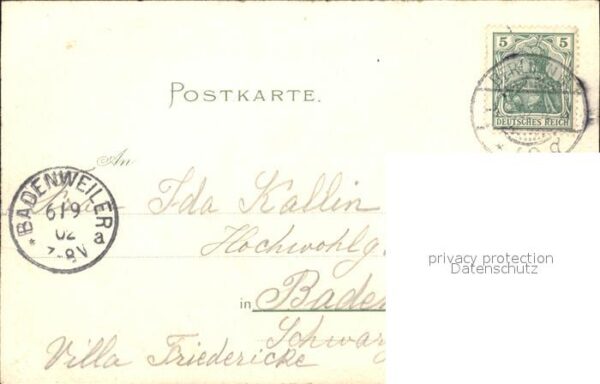 POSTKARTE.
5 5
DEUTSCHES REICH
An
BADENWEILER
6/9
02
7-8V
* a
Ida Kallin
Hochwohlg.
in Bade
Schwarz
Villa Friedericke
privacy protection
Datenschutz